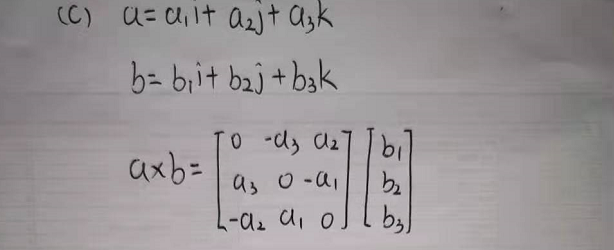 (C) a = a₁i + a₂j + a₃k
b = b₁i + b₂j + b₃k
a×b = [0 -a₃ a₂; a₃ 0 -a₁; -a₂ a₁ 0] [b₁; b₂; b₃]